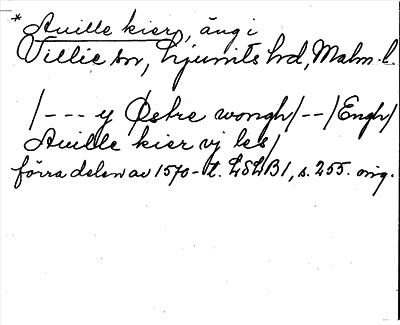 * Auille kier, äng i
Villie sn, Ljunits hd, Malm. l.
/--- y Østre wongh/--/Engh/
Auille kier vj les/
förra delen av 1570-t. LSLB1, s. 255. orig.